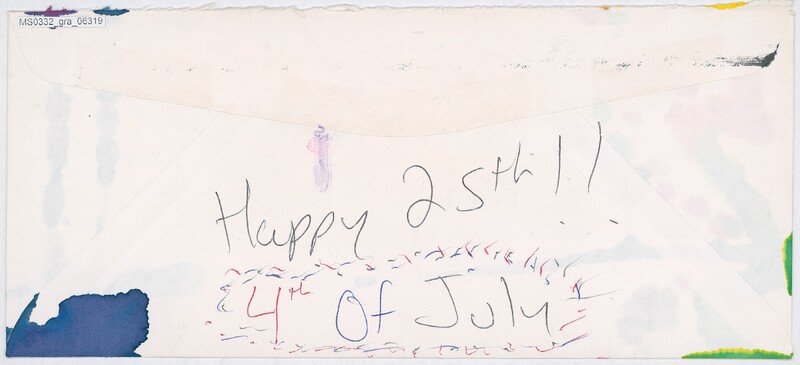 MS0332_gra_06319
Happy 25th!!
4th Of July